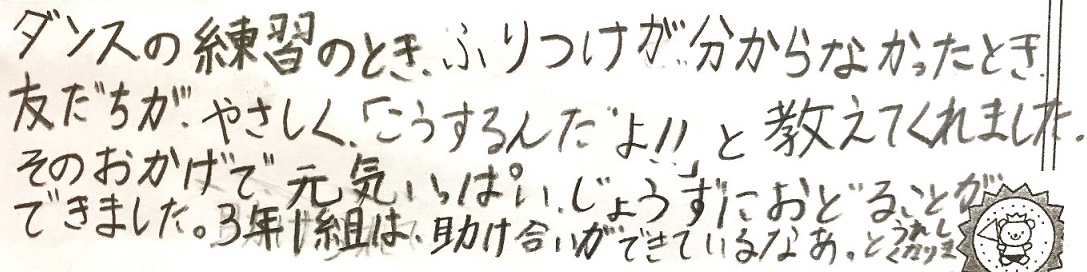 ダンスの練習のとき、ふりつけが分からなかったとき、
友だちが、やさしく、「こうするんだよ!!」と教えてくれました。
そのおかげで元気いっぱい、じょうずにおどることが
できました。3年1組は、助け合いができているなあ。とうれし
くなりま